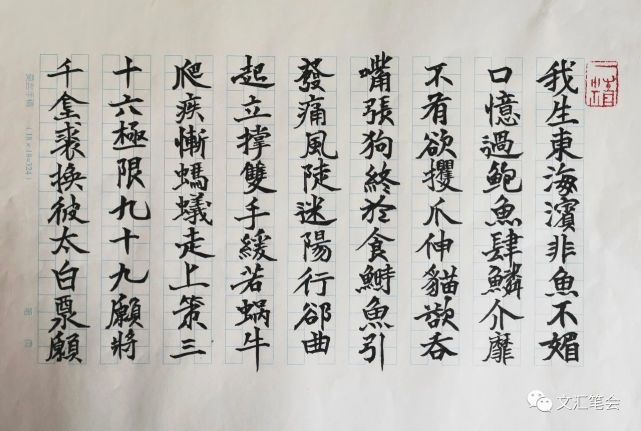 我生東海濱非魚不媚
口憶過鮑魚肆鱗介靡
不有欲攫爪伸貓歘吞
嘴張狗終於食鰣魚引
發痛風陡迷陽行郤曲
起立撐雙手緩若蝸牛
爬疾慚螞蟻走上策三
十六極限九十九願將
千金裘換彼太白票願
(18×18=324)
文汇笔会